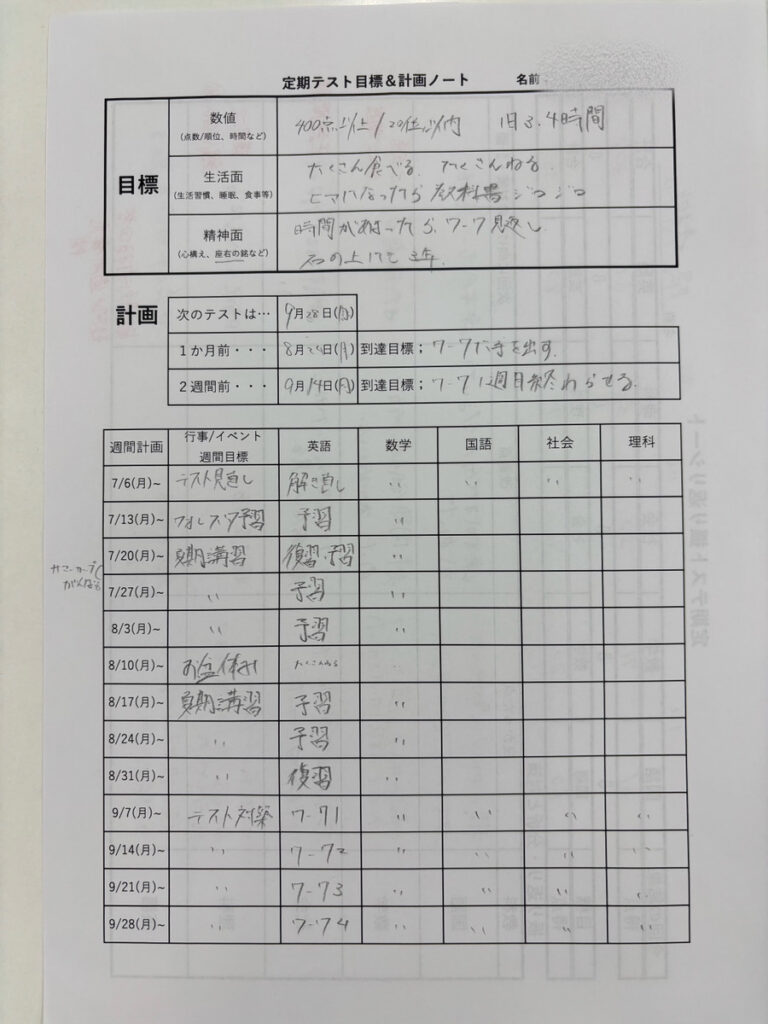 定期テスト目標＆計画ノート 名前
目標
数値
(点数/順位、時間など)
400点以上/20位以内 1日3.4時間
生活面
(生活習慣、睡眠、食事等)
たくさん食べる たくさんねる
ヒマになったら 教科書ジロジロ
精神面
(心構え、座右の銘など)
時間があったら ワーク見返し
石の上にも三年
計画
次のテストは… 9月28日(月)
1か月前・・・ 8月24日(月) 到達目標； ワークに手を出す.
2週間前・・・ 9月14日(月) 到達目標； ワーク1週目終わらせる.
週間計画 行事/イベント 週間目標 英語 数学 国語 社会 理科
7/6(月)~ テスト見直し 解き直し 〃 〃 〃 〃
7/13(月)~ フォレスタ予習 予習 〃
7/20(月)~ 夏期講習 復習・予習 〃
サマーカップ
がんばる
7/27(月)~ 〃 予習 〃
8/3(月)~ 〃 予習 〃
8/10(月)~ お盆休み たくさんねる
8/17(月)~ 夏期講習 予習 〃
8/24(月)~ 〃 予習 〃
8/31(月)~ 〃 復習 〃
9/7(月)~ テスト対策 ワーク1 〃 〃 〃 〃
9/14(月)~ 〃 ワーク2 〃 〃 〃 〃
9/21(月)~ 〃 ワーク3 〃 〃 〃 〃
9/28(月)~ 〃 ワーク4 〃 〃 〃 〃